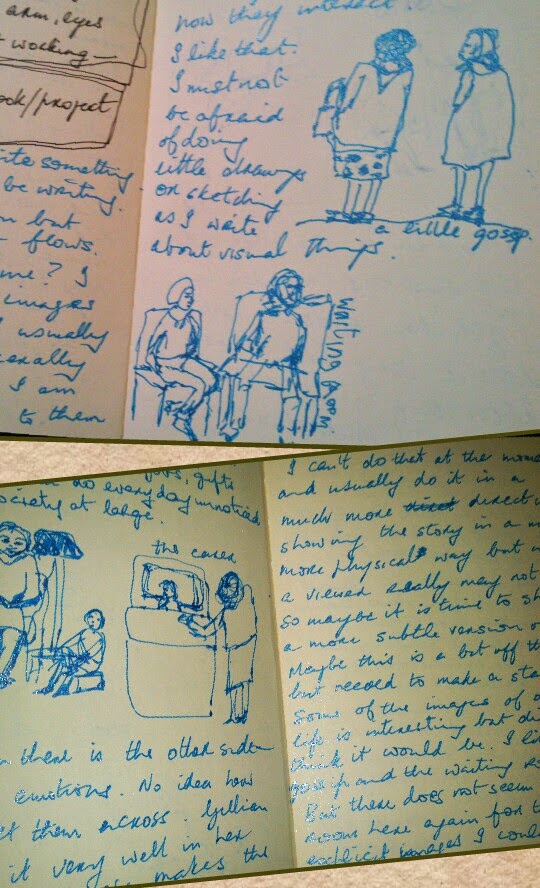 arm, eyes
working
book/project
something
be writing.
but
flows.
me? I
images
usually
I am
to them
now they intersect
I like that.
I must not
be afraid
of doing
little drawings
or sketching
as I write
about visual things.
a little gossip.
Waiting Room.
gifts
do everyday unnoticed
society at large.
the carer
there is the other side
emotions. No idea how
them across. Gillian
it very well in her
makes the
I can't do that at the mome
and usually do it in a
much more direct w
showing the story in a m
more physical way but
a viewer really may not
so maybe it is time to
a more subtle version o
Maybe this is a bit off th
but need to make a sta
Some of the images of
life is interesting but di
think it would be. I li
gossip and the waiting
But there does not seem
room here again for
explicit images I coul